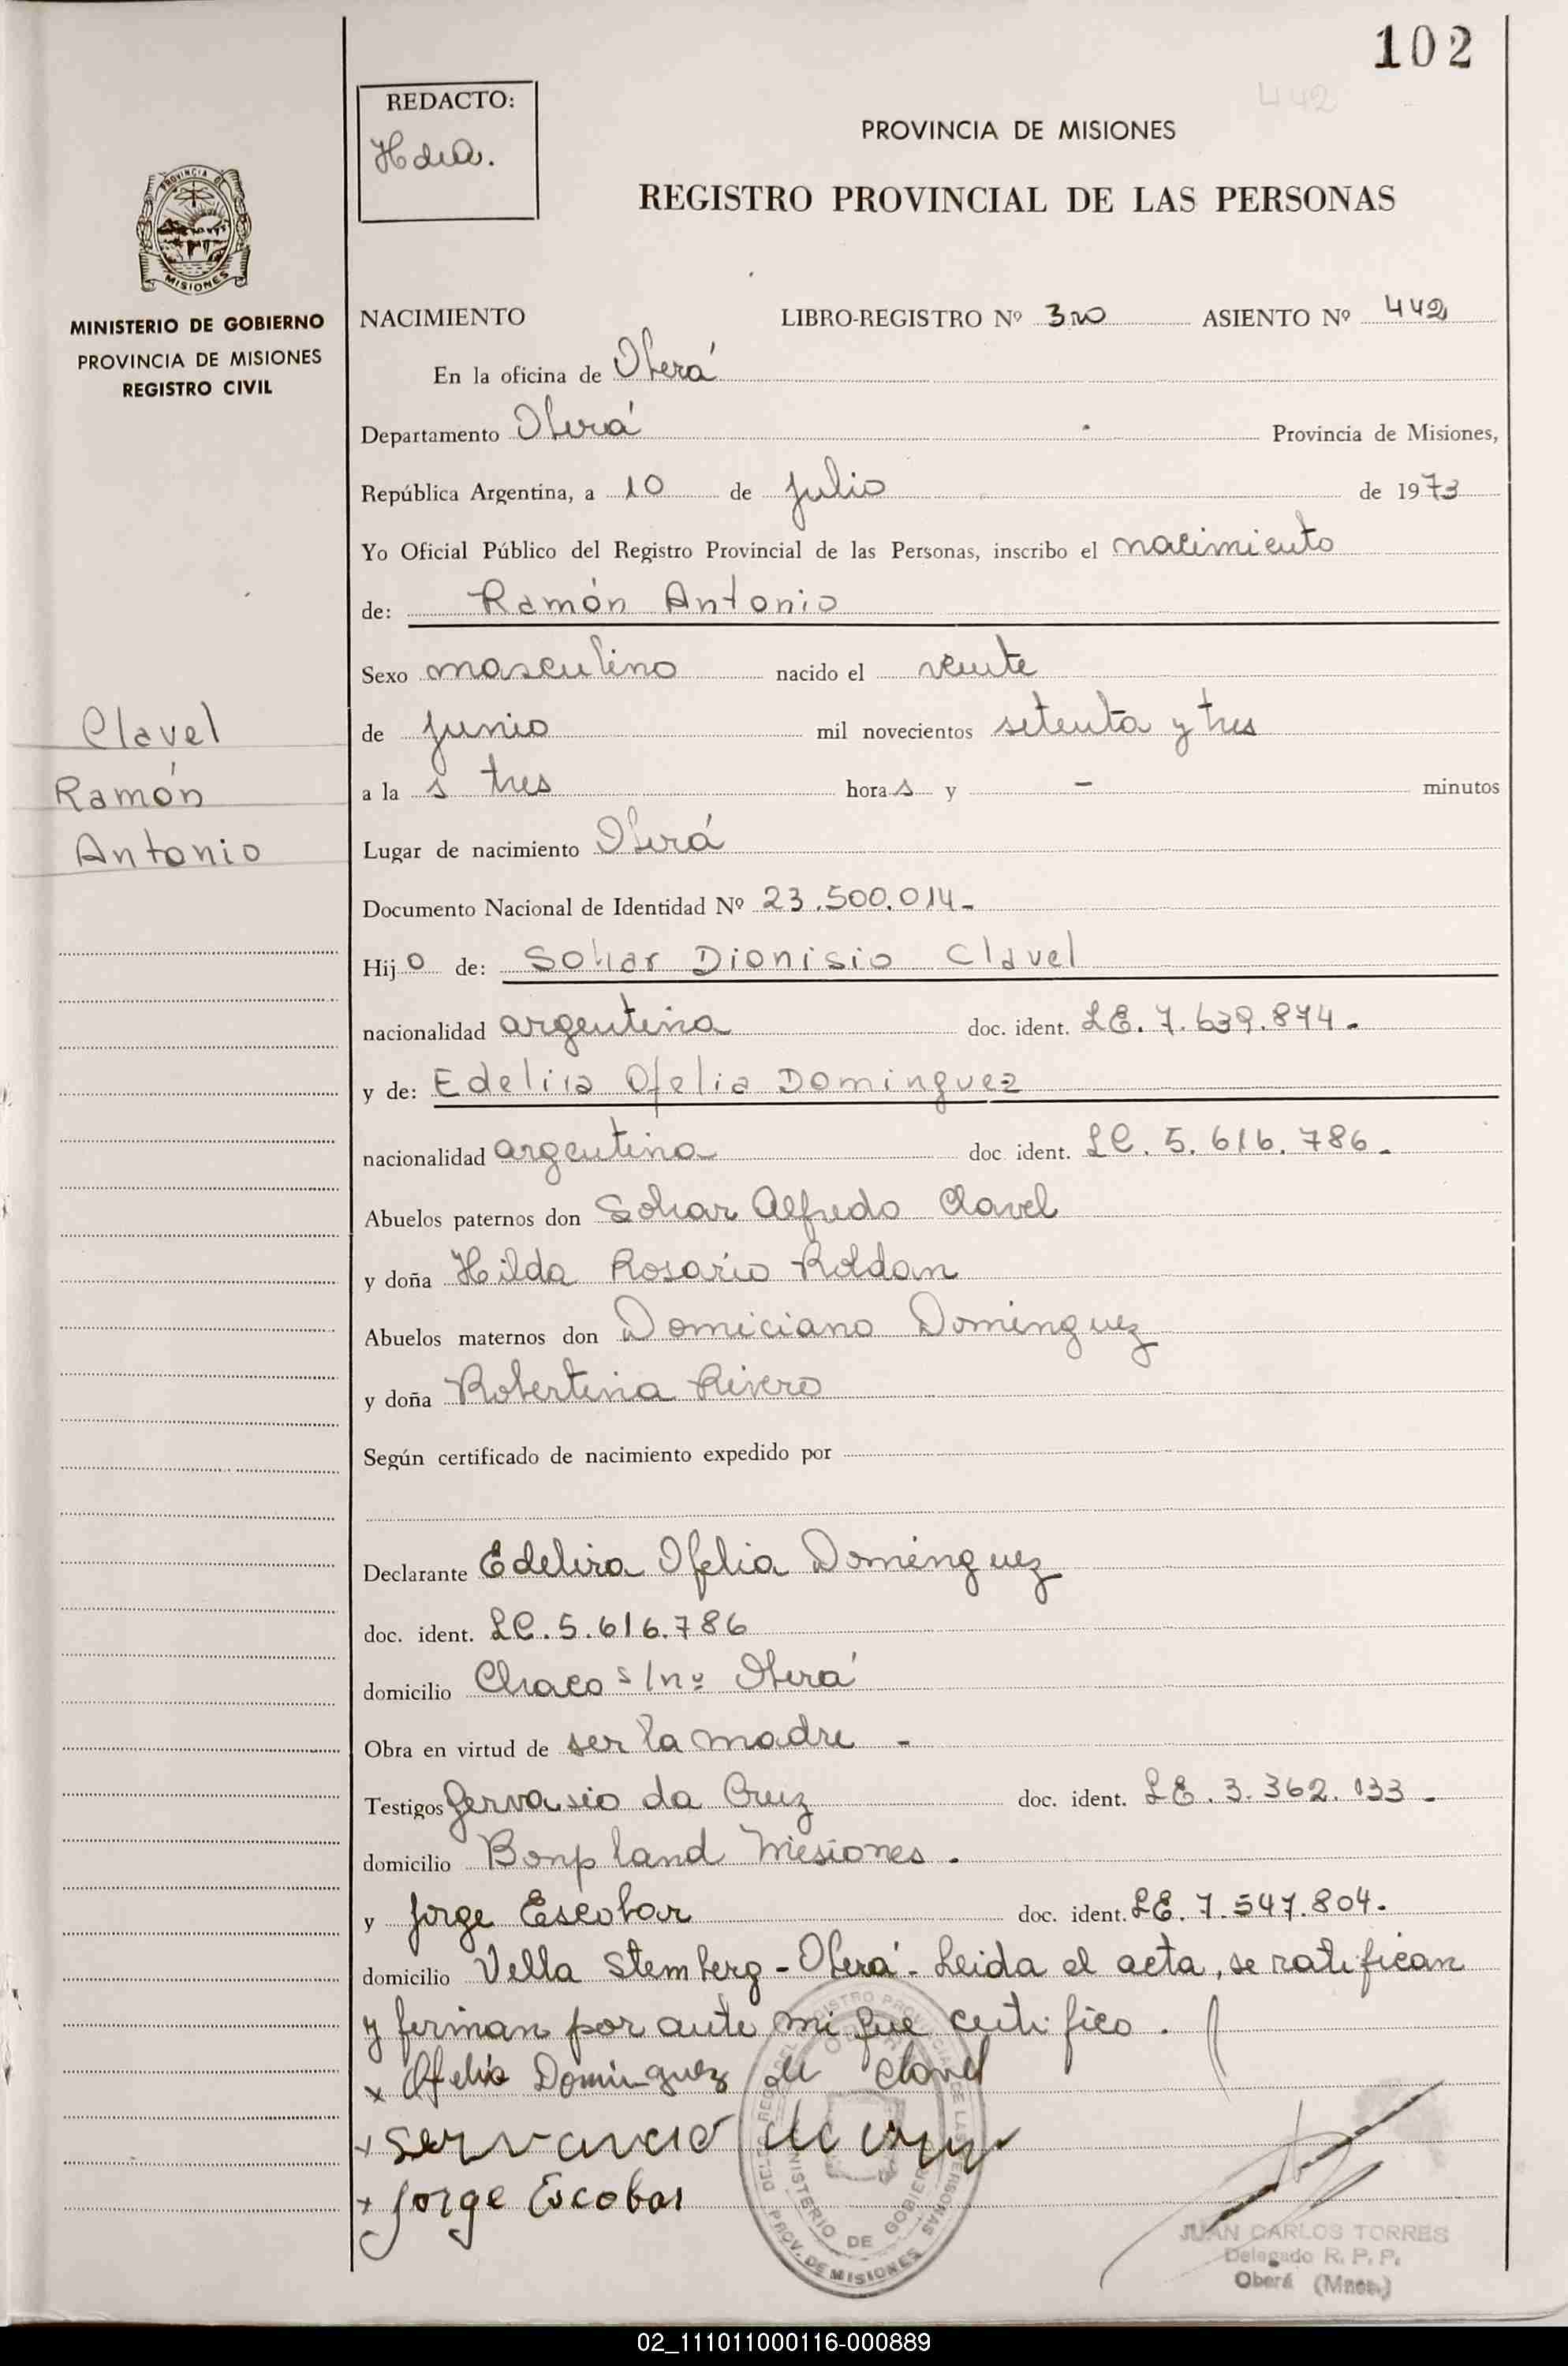 102
442
REDACTO:
PROVINCIA DE MISIONES
REGISTRO PROVINCIAL DE LAS PERSONAS
PROVINCIA DE
MISIONES
MINISTERIO DE GOBIERNO
PROVINCIA DE MISIONES
REGISTRO CIVIL
NACIMIENTO LIBRO-REGISTRO Nº ASIENTO Nº 442
En la oficina de Oberá
Departamento Oberá Provincia de Misiones,
República Argentina, a 10 de julio de 1973
Yo Oficial Público del Registro Provincial de las Personas, inscribo el nacimiento
de: Ramón Antonio
Sexo masculino nacido el veinte
Clavel
Ramón
Antonio
de junio mil novecientos setenta y tres
a la s tres hora s y - minutos
Lugar de nacimiento Oberá
Documento Nacional de Identidad Nº 23.500.014-
Hij o de: Dionisio Clavel
nacionalidad argentina doc. ident. LE. 7.639.874.
y de: Edelira Ofelia Dominguez
nacionalidad argentina doc ident. LC. 5.616.786.
Abuelos paternos don Alfredo Clavel
y doña Hilda Rosario Roldan
Abuelos maternos don Domiciano Dominguez
y doña Robertina Rivero
Según certificado de nacimiento expedido por
Declarante Edelira Ofelia Dominguez
doc. ident. LC.5.616.786
domicilio Chaco s/nº Oberá
Obra en virtud de ser la madre -
Testigos Gervasio da Cruz doc. ident. LE. 3.362.133-
domicilio Bonpland Misiones.
y Jorge Escobar doc. ident. LE. 7.547.804.
domicilio Villa Stemberg - Oberá - Leida el acta, se ratifican
y firman por ante mi que certifico.
x Ofelia Dominguez de Clavel
x
x Jorge Escobar
MINISTERIO DE GOBIERNO
PROV. DE MISIONES
JUAN CARLOS TORRES
Delegado R. P. P.
Oberá (Mnes.)
02_111011000116-000889